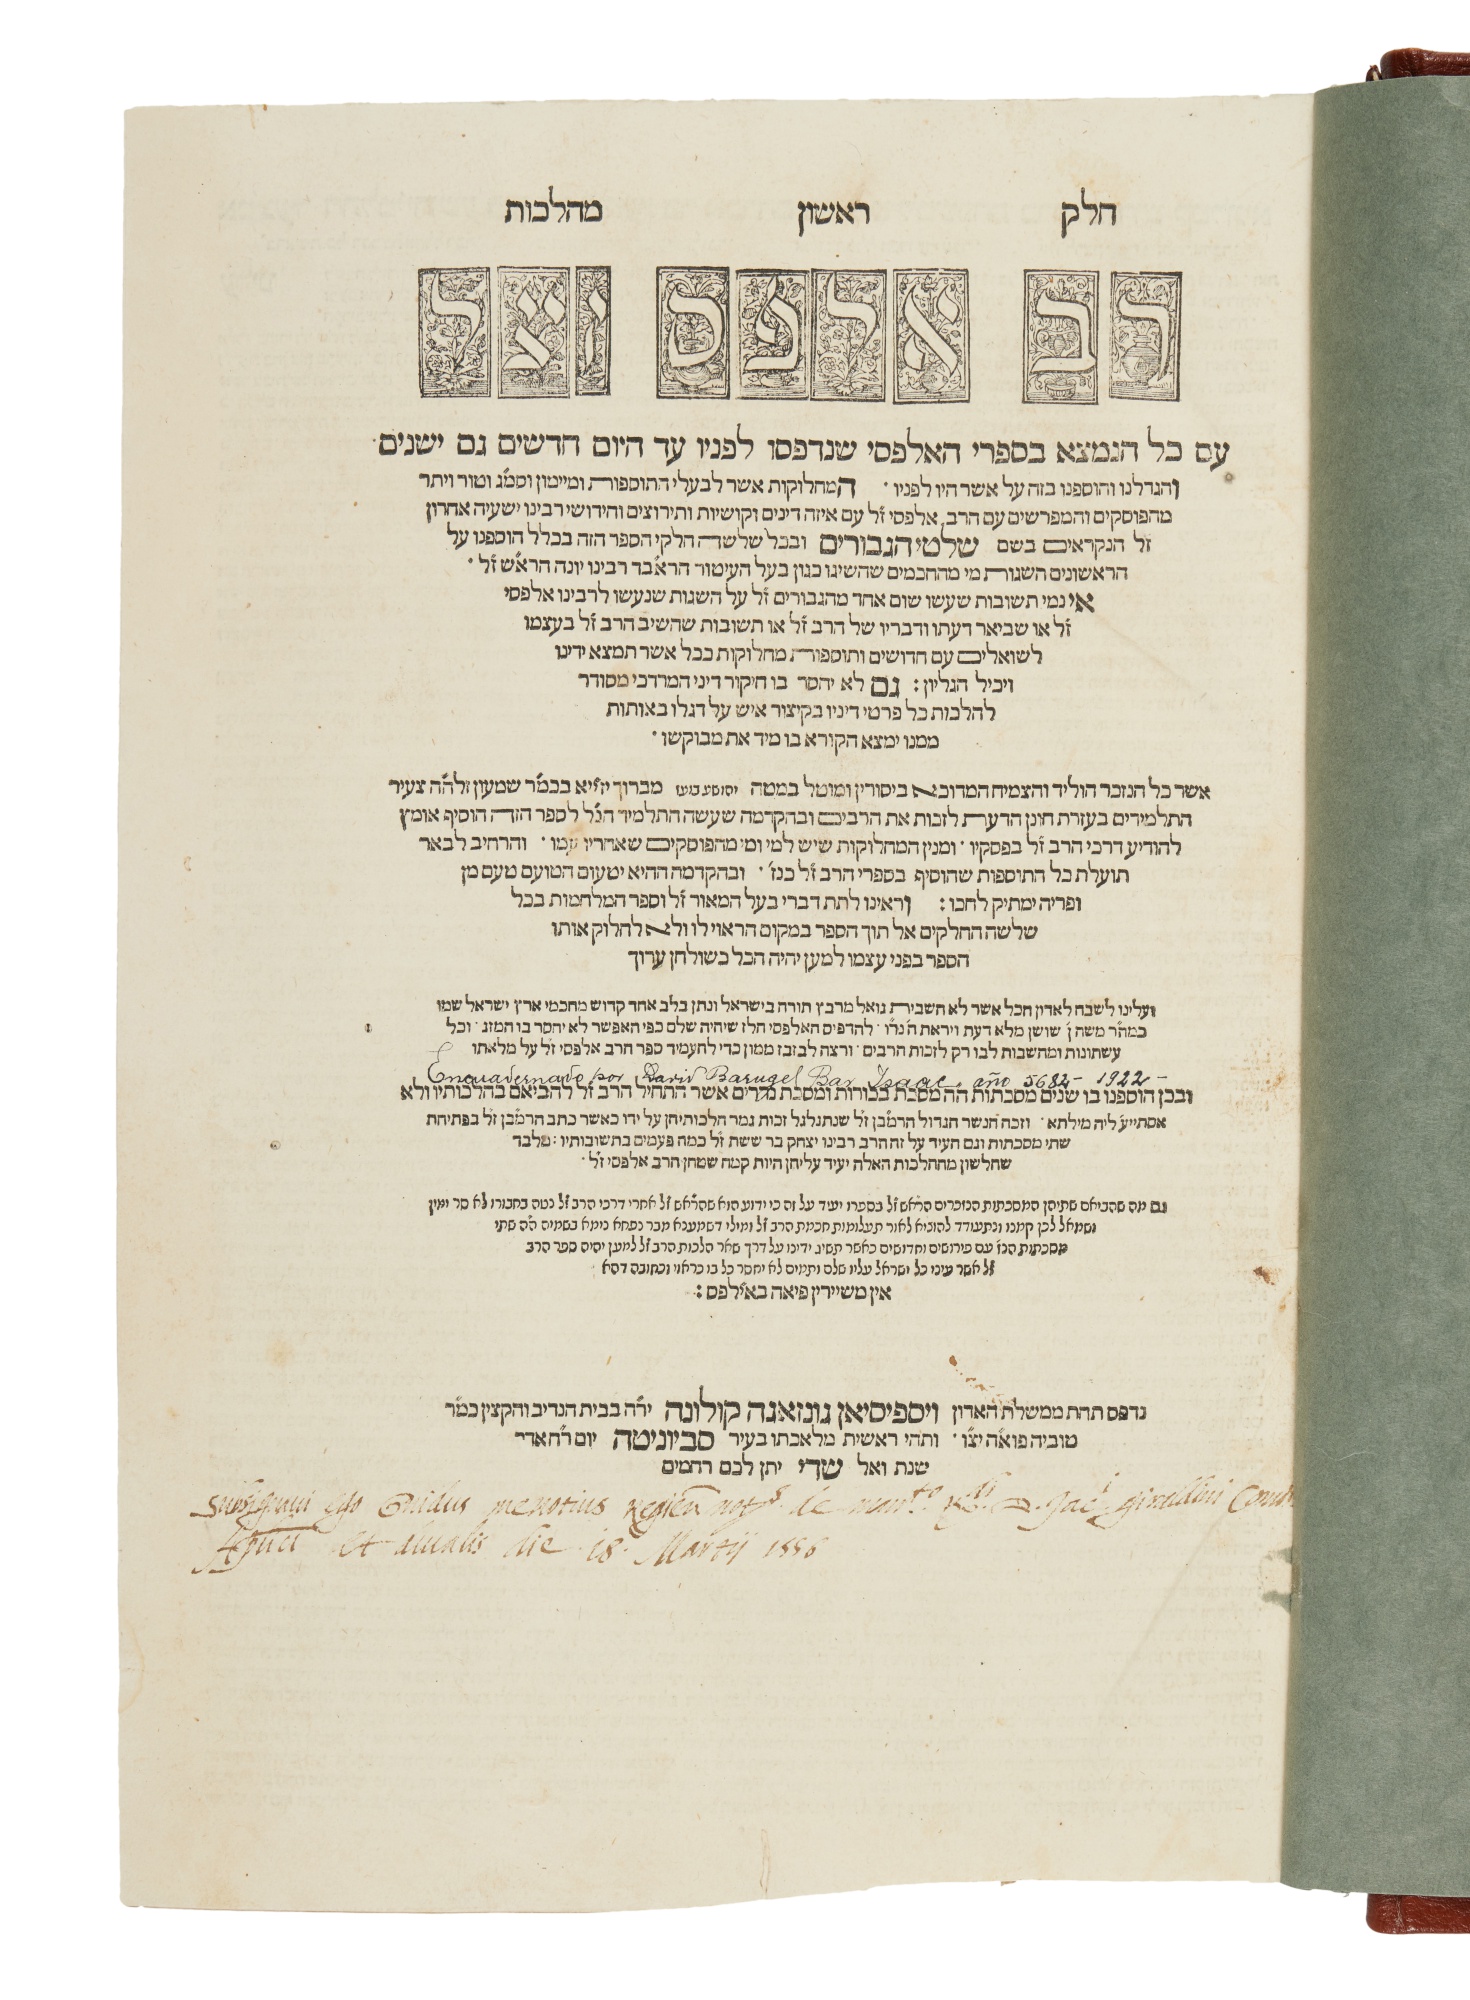 חלק ראשון מהלכות
רב אלפס זצל
עם כל הנמצא בספרי האלפסי שנדפסו לפניו עד היום חדשים גם ישנים
והגדלנו והוספנו בזה על אשר היו לפניו · המחלוקות אשר לבעלי התוספות ומיימון וסמ״ג וטור ויתר
מהפוסקים והמפרשים עם הרב אלפסי ז״ל עם איזה דינים וקושיות ותירוצים וחידושי רבינו ישעיה אחרון
ז״ל הנקראים בשם שלטי הגבורים ובכל שלשה חלקי הספר הזה בכלל הוספנו על
הראשונים השגות מי מהחכמים שהשיגו כגון בעל העיטור הרא״בד רבינו יונה הרא״ש ז״ל ·
אי נמי תשובות שעשו שום אחד מהגבורים ז״ל על השגות שנעשו לרבינו אלפסי
ז״ל או שביאר דעתו ודבריו של הרב ז״ל או תשובות שהשיב הרב ז״ל בעצמו
לשואלים עם חדושים ותוספות מחלוקות ככל אשר תמצא ידינו
ויכיל הגליון : גם לא יחסר בו חיקור דיני המרדכי מסודר
להלכות כל פרטי דיניו בקיצור איש על דגלו באותות
ממנו ימצא הקורא בו מיד את מבוקשו ·
אשר כל הנזכר הוליד והצמיח המדוכא ביסורין ומוטל במטה יהושע בועז מברוך יז״יא בכמ״ר שמעון זלה״ה צעיר
התלמידים בעזרת חונן הדעת לזכות את הרבים ובהקדמה שעשה התלמיד הנ״ל לספר הזה הוסיף אומץ
להודיע דרכי הרב ז״ל בפסקיו · ומנין המחלוקות שיש למי ומי מהפוסקים שאחריו עמו · והרחיב לבאר
תועלת כל התוספות שהוסיף בספרי הרב ז״ל כנז׳ · ובהקדמה ההיא יטעום הטועם טעם מן
ופריה ימתיק לחכו : וראינו לתת דברי בעל המאור ז״ל וספר המלחמות בכל
שלשה החלקים אל תוך הספר במקום הראוי לו ולא לחלוק אותו
הספר בפני עצמו למען יהיה הכל כשולחן ערוך
ועלינו לשבח לאדון הכל אשר לא השבית גואל מרבץ תורה בישראל ונתן בלב אחד קדוש מחכמי ארץ ישראל שמו
כמה״ר משה ן׳ שושן מלא דעת ויראת ה׳ · להדפיס האלפסי הלז שיהיה שלם כפי האפשר לא יחסר בו המזג · וכל
עשתונות ומחשבות לבו רק לזכות הרבים · ורצה לבזבז ממון כדי להעמיד ספר הרב אלפסי ז״ל על מלאתו
Encuadernado por David Barugel Bar Isaac, año 5682 - 1922 -
ובכן הוספנו בו שנים מסכתות הה מסכת בכורות ומסכת נדרים אשר התחיל הרב ז״ל להביאם בהלכותיו ולא
אסתייע׳ ליה מילתא · וזכה הנשר הגדול הרמ״בן ז״ל שנתגלגל זכות גמר הלכותיהן על ידו כאשר כתב הרמ״בן ז״ל בפתיחת
שתי מסכתות וגם העיד על זה הרב רבינו יצחק בר ששת ז״ל כמה פעמים בתשובותיו : מלבד
שהלשון מההלכות האלה יעיד עליהן היות קמח שטחן הרב אלפסי ז״ל ·
גם מה שהביאם שתיהן המסכתות הנזכרים הרא״ש ז״ל בספרו יעיד על זה כי ידוע הוא שהרא״ש ז״ל אחרי דרכי הרב ז״ל נטה בחבורו לא סר ימין
ושמאל לכן קמנו ונתעודד להוציא לאור תעלומות חכמת הרב ז״ל ומילי דשמעתא מבר נפחא נימא בשמיה הה שתי
מסכתות הנז׳ עם פירושים וחדושים כאשר תשיג ידינו על דרך שאר הלכות הרב ז״ל למען יהיה ספר הרב
ז״ל אשר עיני כל ישראל עליו שלם ותמים לא יחסר כל בו כראוי וכחובה דהא
אין משיירין פיאה באילפס :
נדפס תחת ממשלת האדון ויספיסיאן גונזאגה קולונה יר״ה בבית הנדיב והקצין כמ״ר
טוביה פוא״ה יצ״ו · ותהי ראשית מלאכתו בעיר סביוניטה יום ר״ח אדר
שנת ואל שדי יתן לכם רחמים
Subsignavi ego
et ducalis die 18 Martij 1556